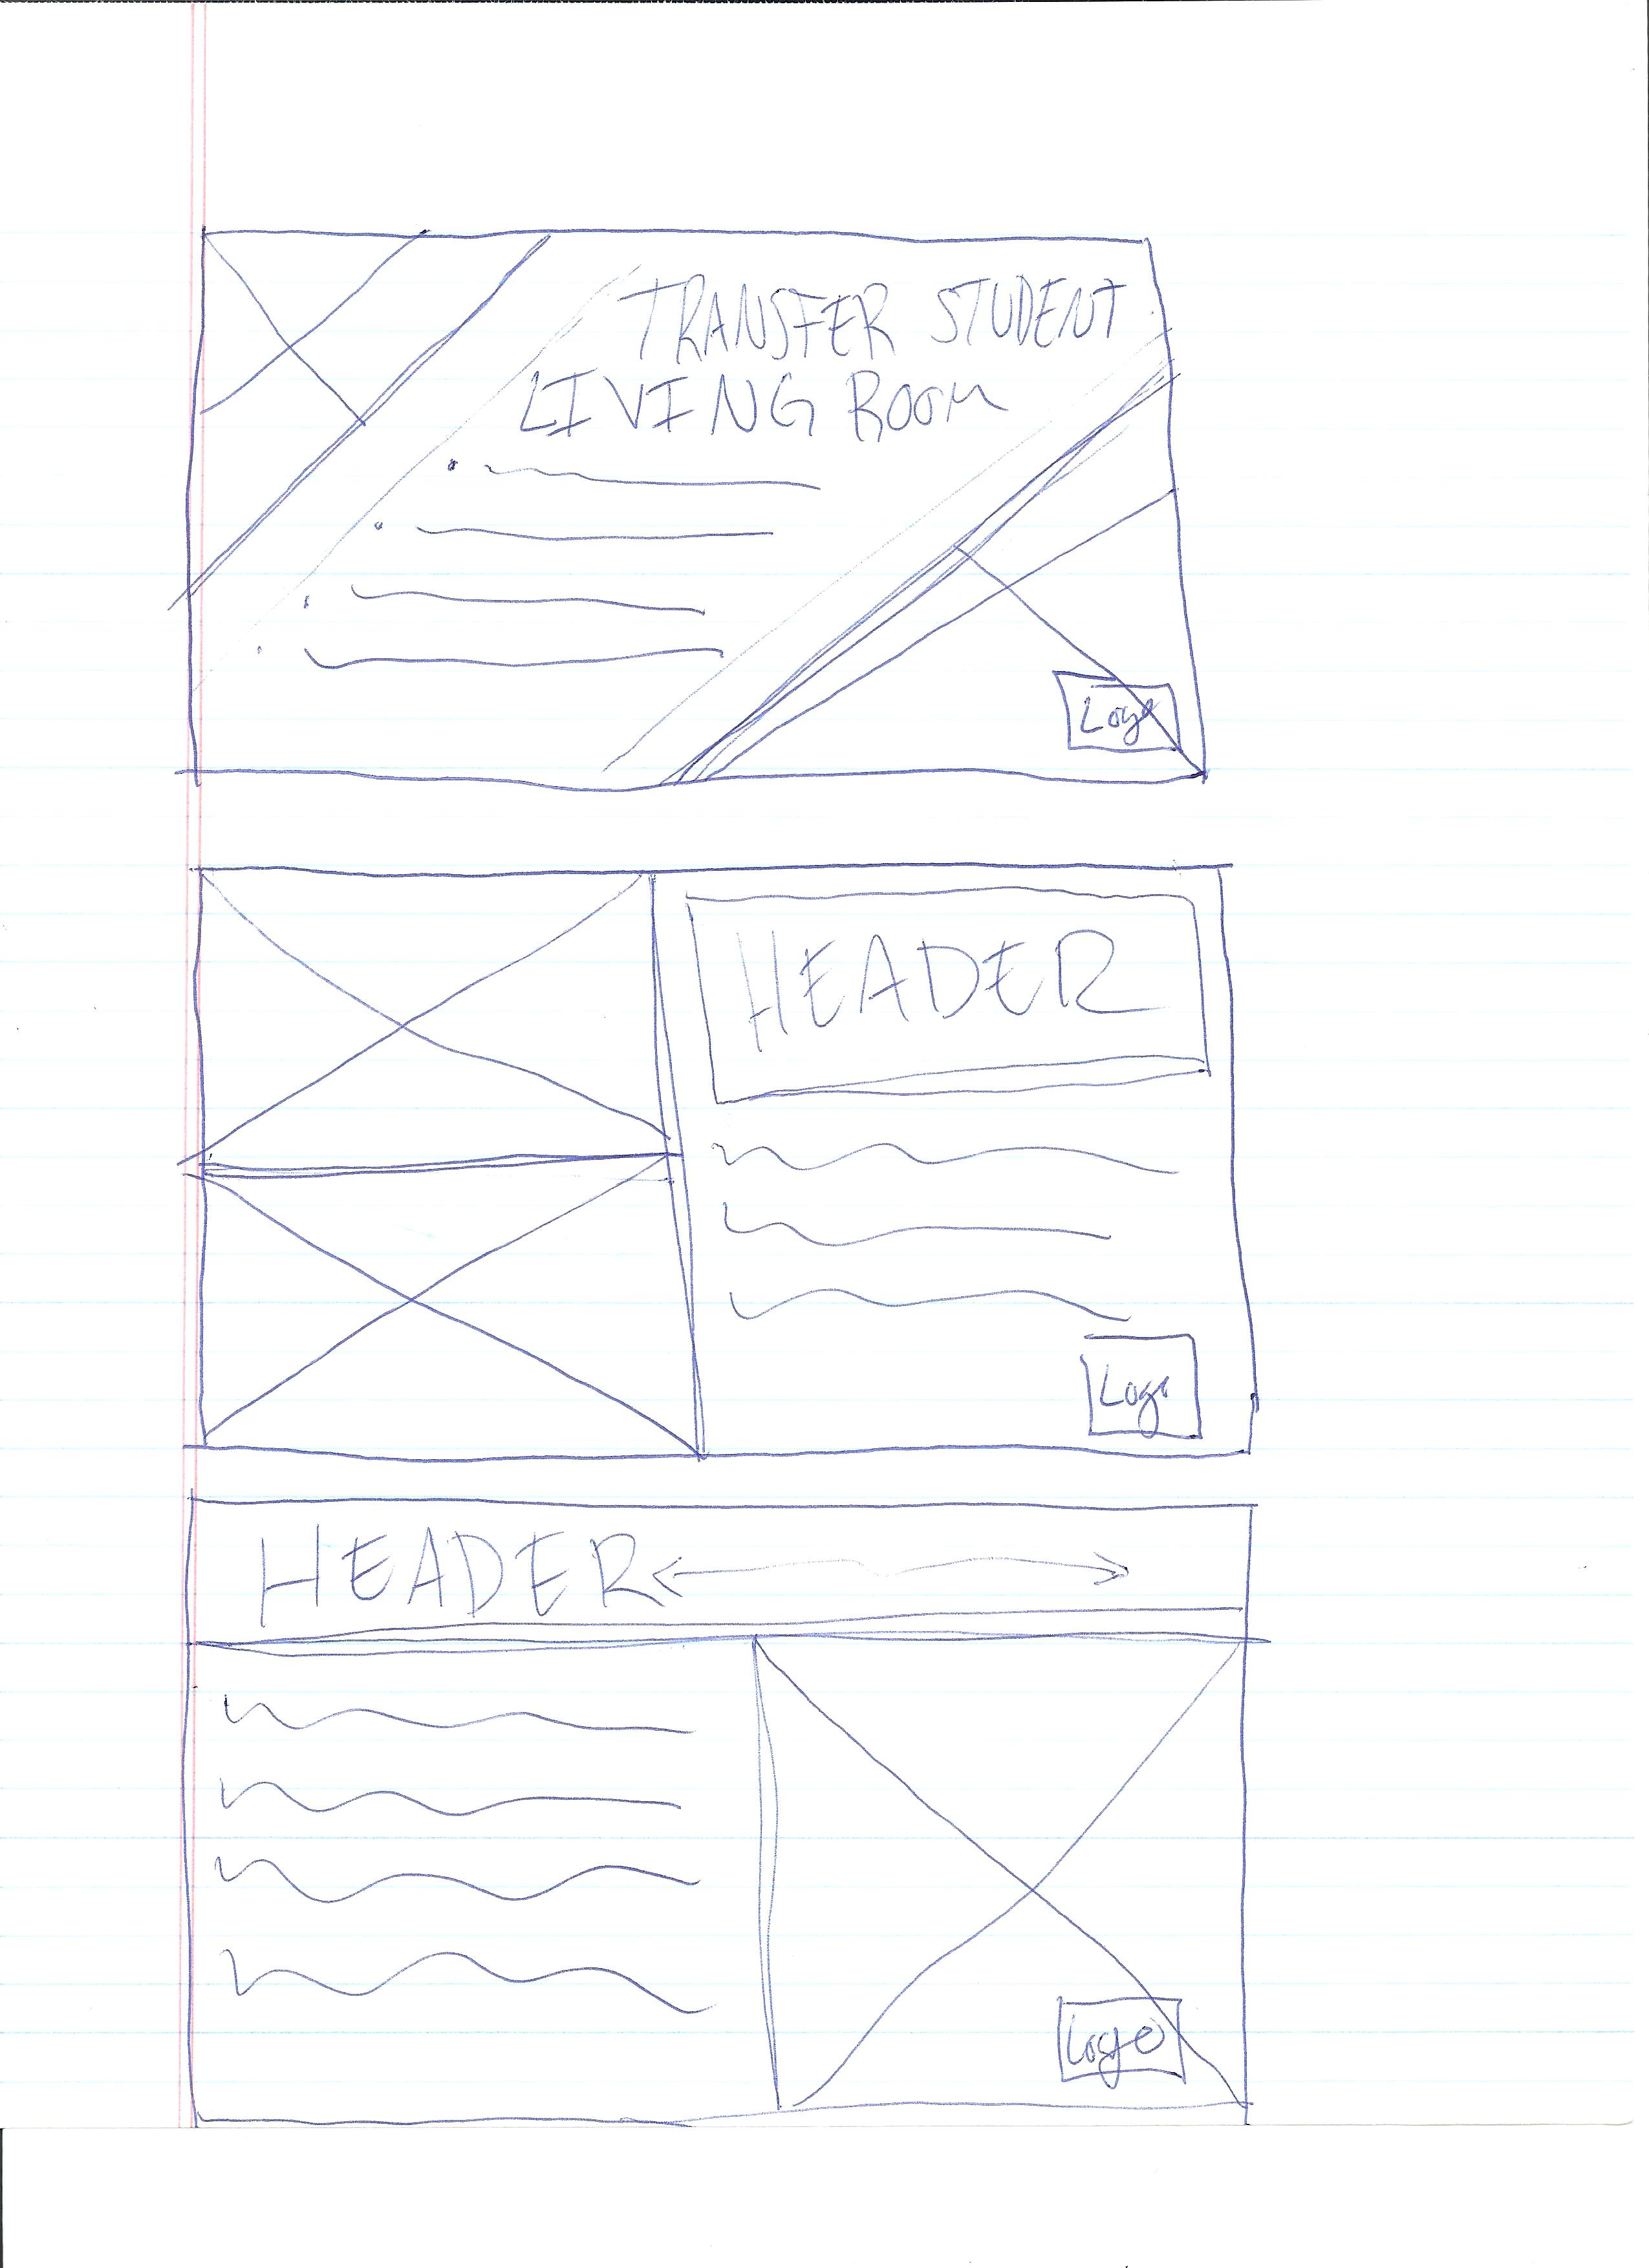 TRANSFER STUDENT
LIVING ROOM
Logo
HEADER
Logo
HEADER
Logo